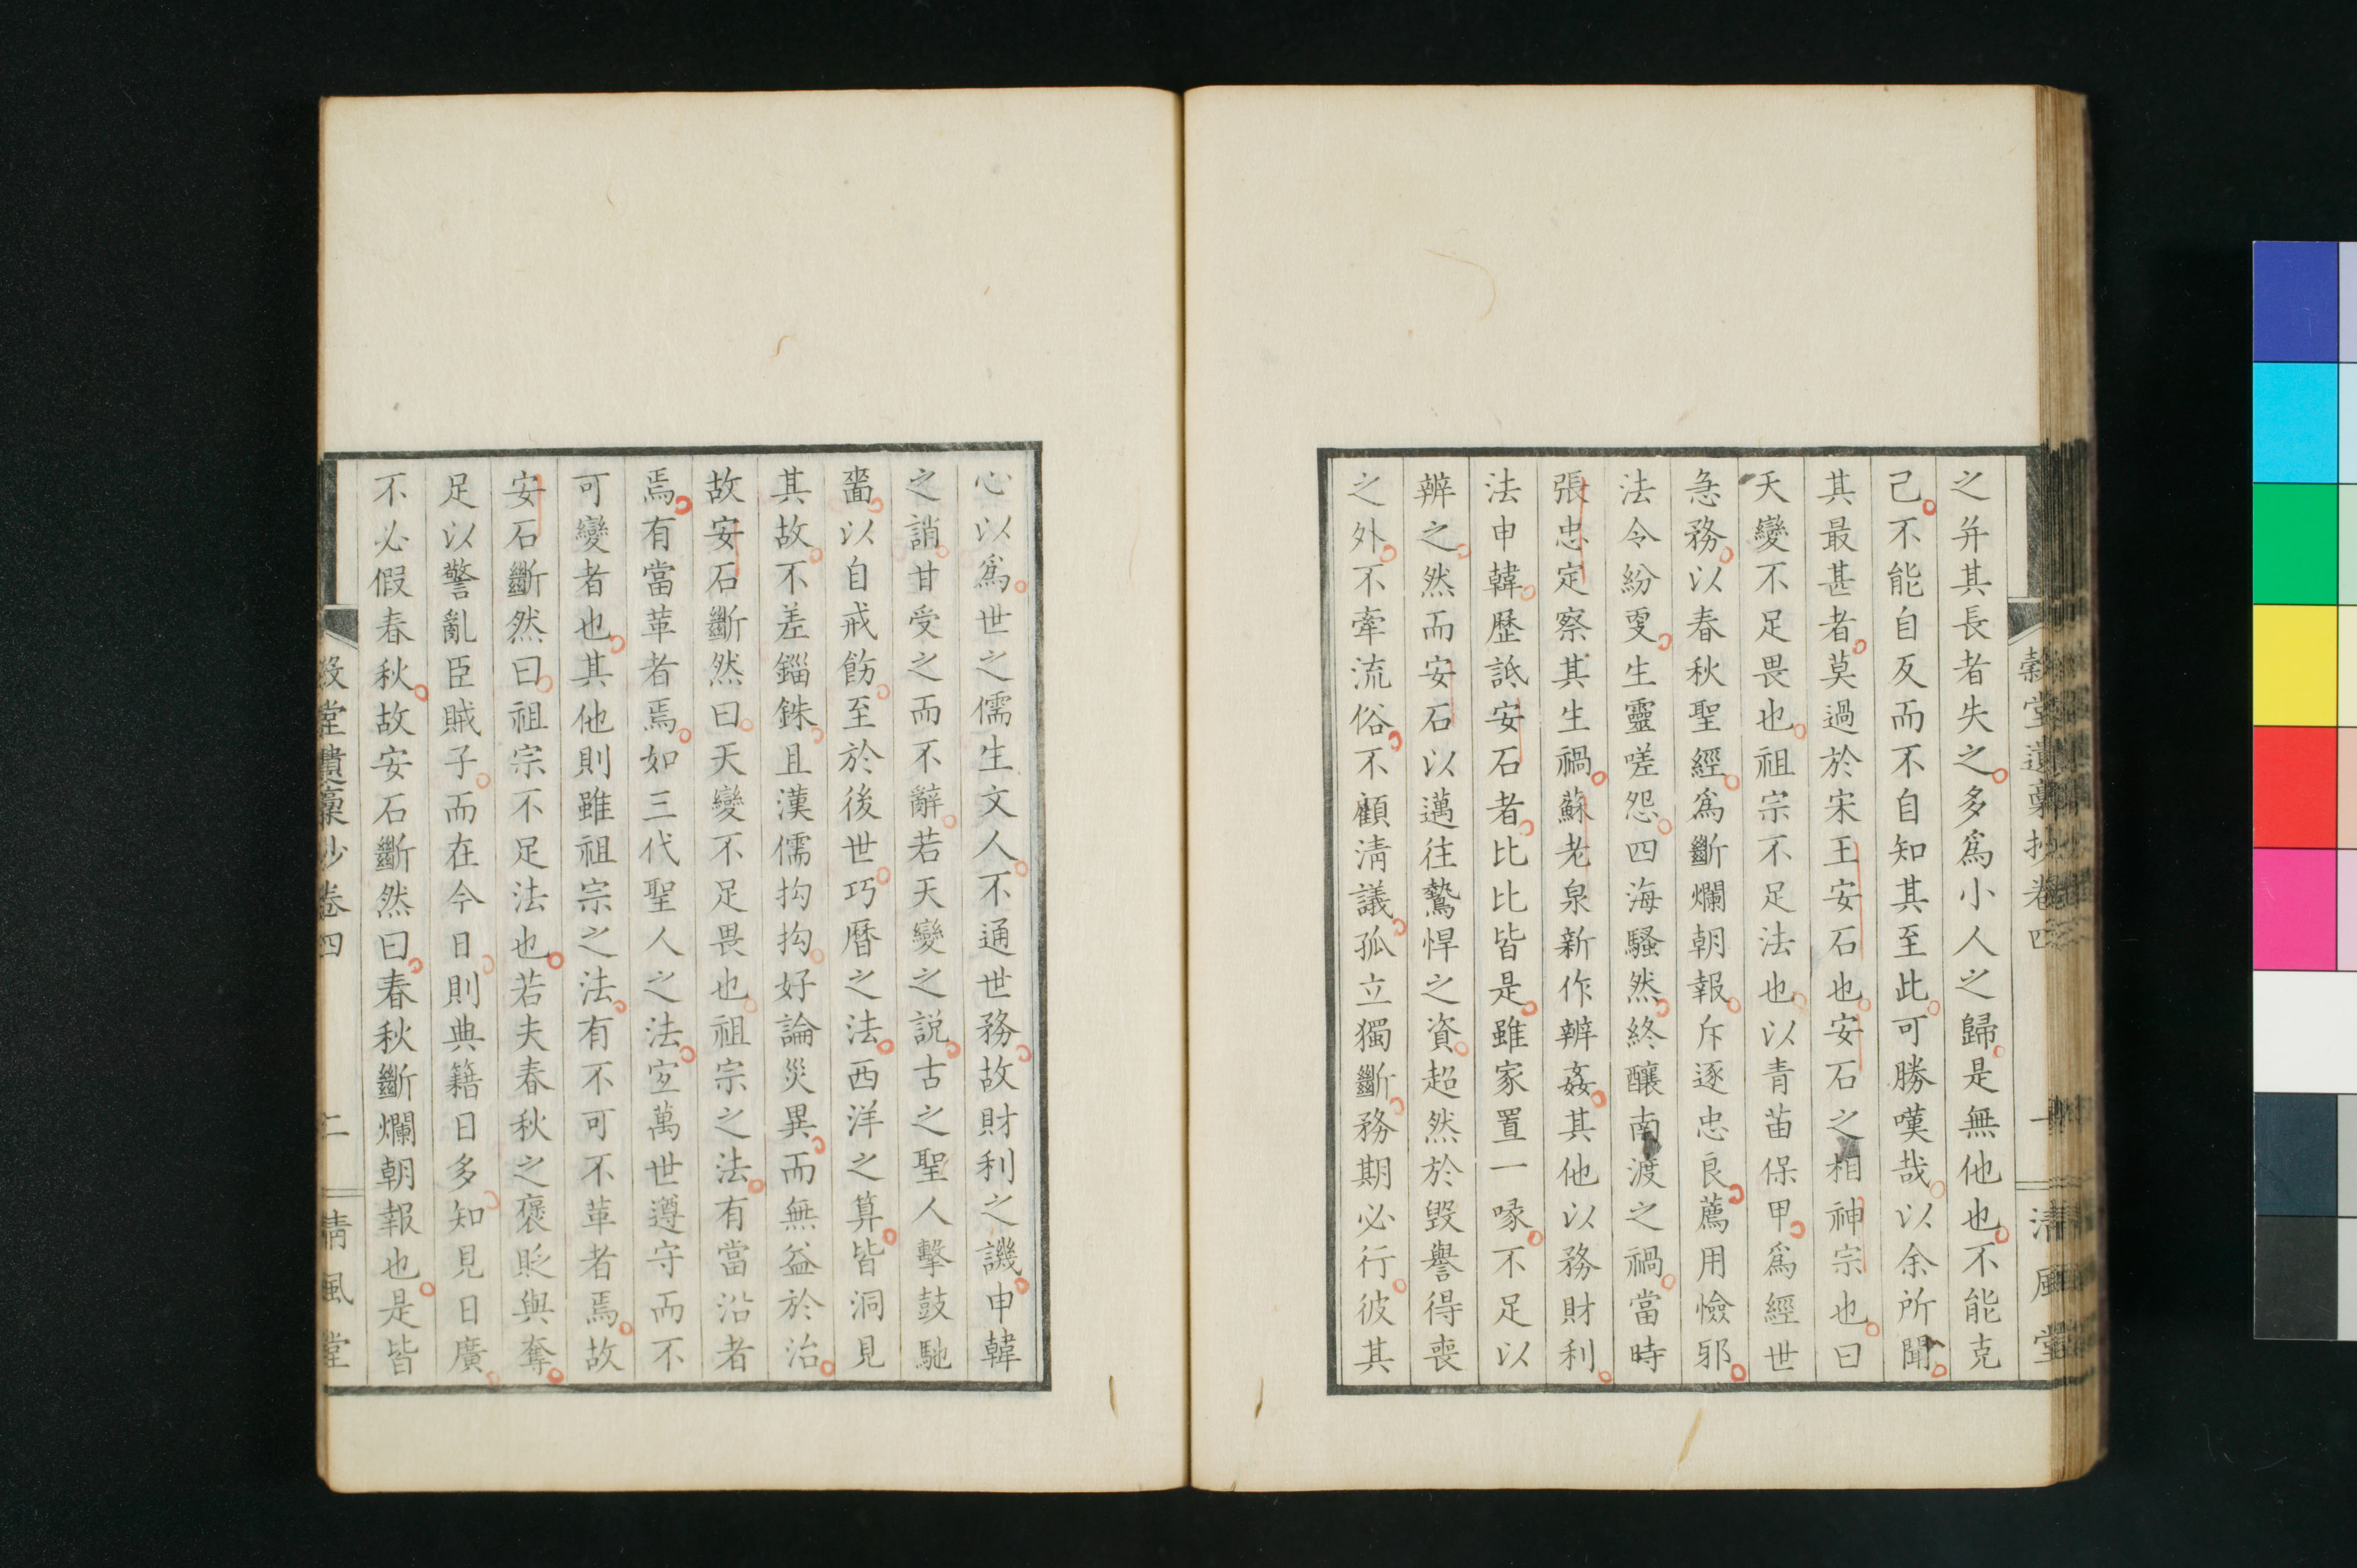 穀堂遺稾抄卷四 一 清風堂
之并其長者失之多爲小人之歸是無他也不能克
己不能自反而不自知其至此可勝嘆哉以余所聞
其最甚者莫過於宋王安石也安石之相神宗也曰
天變不足畏也祖宗不足法也以青苗保甲爲經世
急務以春秋聖經爲斷爛朝報斥逐忠良薦用憸邪
法令紛更生靈嗟怨四海騷然終釀南渡之禍當時
張忠定察其生禍蘇老泉新作辨姦其他以務財利
法申韓歷詆安石者比比皆是雖家置一喙不足以
辨之然而安石以邁往鷙悍之資超然於毀譽得喪
之外不牽流俗不顧淸議孤立獨斷務期必行彼其
心以爲世之儒生文人不通世務故財利之譏申韓
之誚甘受之而不辭若天變之説古之聖人擊鼓馳
嗇以自戒飭至於後世巧曆之法西洋之算皆洞見
其故不差錙銖且漢儒拘拘好論災異而無益於治
故安石斷然曰天變不足畏也祖宗之法有當沿者
焉有當革者焉如三代聖人之法宜萬世遵守而不
可變者也其他則雖祖宗之法有不可不革者焉故
安石斷然曰祖宗不足法也若夫春秋之褒貶與奪
足以警亂臣賊子而在今日則典籍日多知見日廣
不必假春秋故安石斷然曰春秋斷爛朝報也是皆
穀堂遺稾抄卷四 二 清風堂